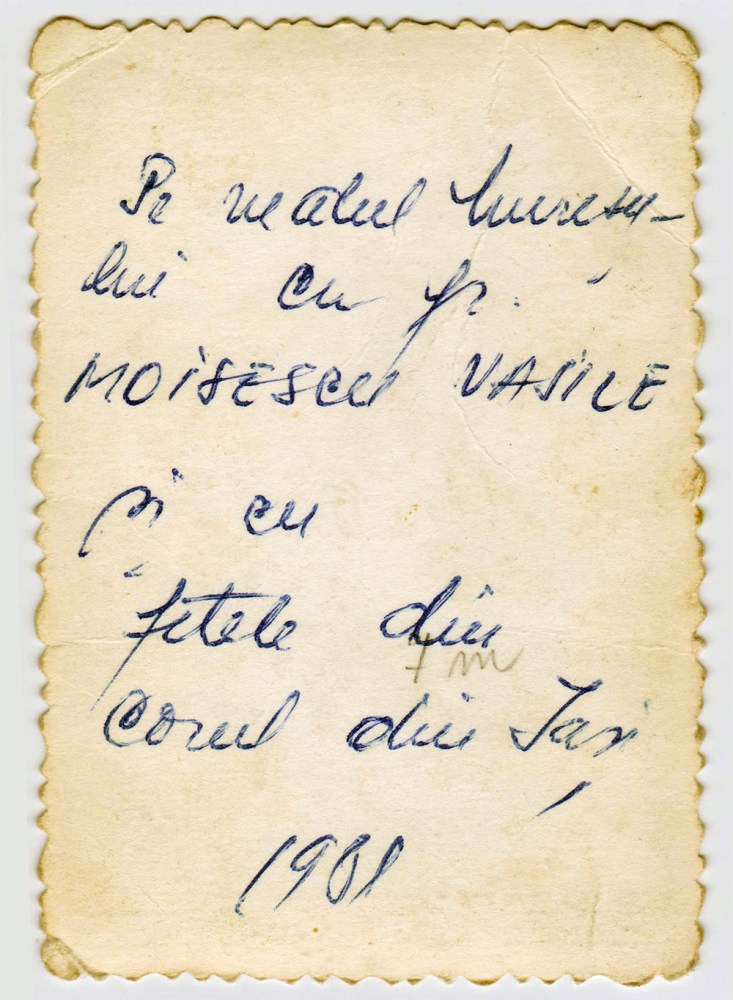 Pe malul Mureșu-
lui cu fr.
MOISESCU VASILE
și cu
fetele din
7 m
Corul din Iași
1981